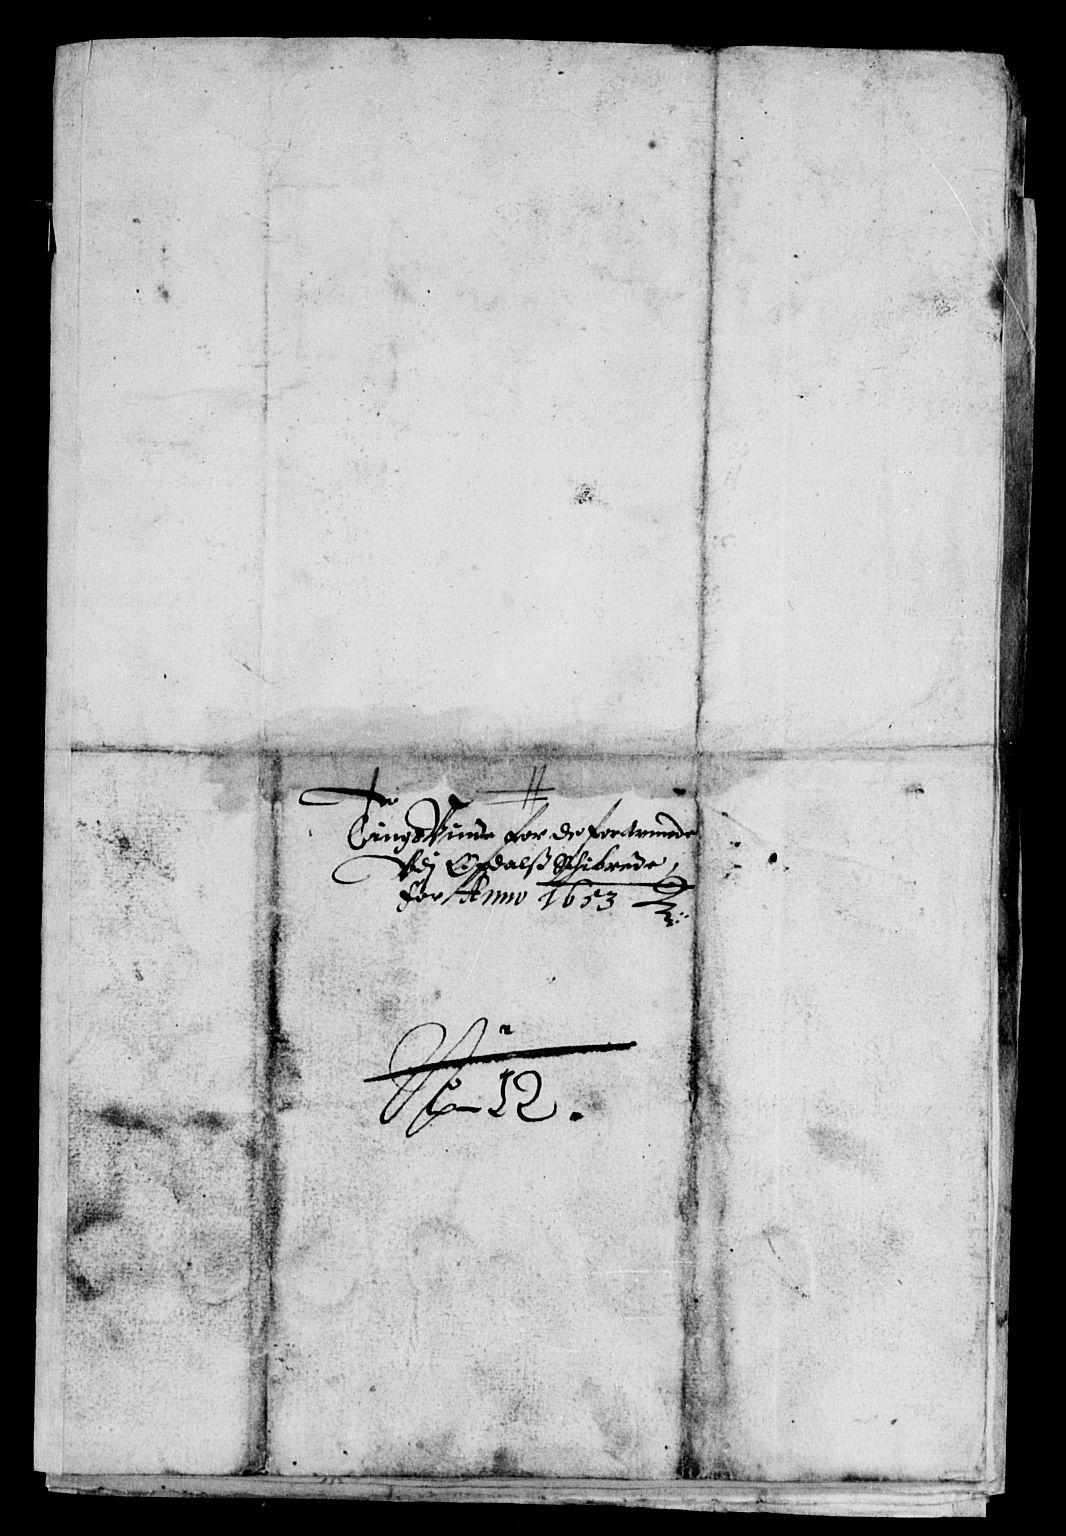 Tingsvinde for de forarmede
Vdj Opdalß Schibrede,
for Anno 1653
No 12.